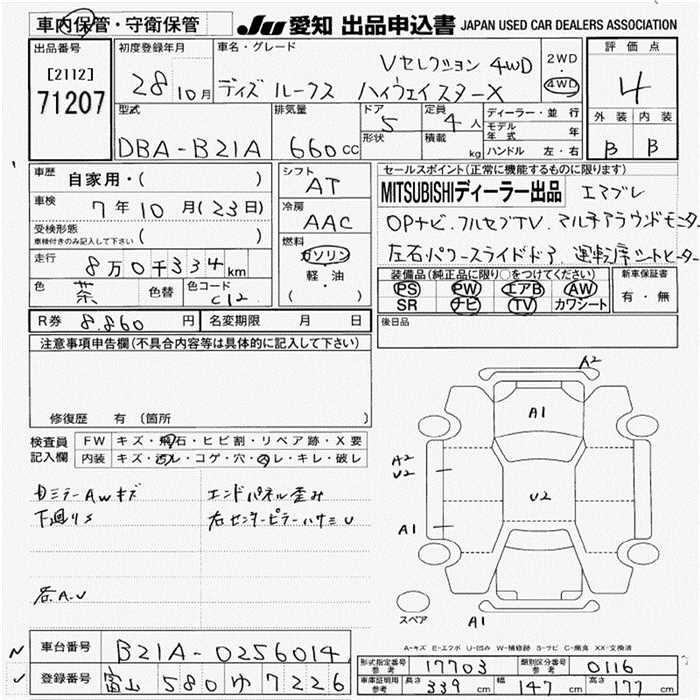 車内保管・守衛保管
JU 愛知 出品申込書 JAPAN USED CAR DEALERS ASSOCIATION
出品番号
[2112]
71207
初度登録年月
28 10月
車名・グレード
Vセレクション 4WD
デイズ ルークス ハイウェイスターX
2WD
・
4WD
評価点
4
外装 内装
B B
型式
DBA-B21A
排気量
660cc
ドア
5
形状
定員
4人
積載
kg
ディーラー・並行
モデル年式 年
ハンドル 左・右
車歴
自家用・( )
車検
7年10月(23日)
受検形態
車検付きのみ記入して下さい
( )
走行
8万0千334km
色
茶
色替
色コード
C12
シフト
AT
冷房
AAC
燃料
ガソリン
軽・油
( )
セールスポイント(正常に機能するものに限ります)
MITSUBISHIディーラー出品 エマブレ
OPナビ.フルセグTV.マルチアラウンドモニター
左右パワースライドドア 運転席シートヒーター
装備品(純正品に限り○をつけてください)
PS PW エアB AW
SR ナビ TV カワシート
新車保証書
有・無
R券 8.860円
名変期限 月 日
後日品
注意事項申告欄(不具合内容等は具体的に記入して下さい)
修復歴 有(箇所 )
検査員
記入欄
FW キズ・飛石・ヒビ割・リペア跡・X要
内装 キズ・汚レ・コゲ・穴・スレ・キレ・破レ
エンドパネル歪み
右センターピラーハサミU
下廻りS
各A.U
A2
A1
A2
U2
U2
A1
A1
スペア
A-キズ E-エクボ U-凹み W-補修跡 S-サビ C-腐食 XX-交換済
車台番号 B21A-0256014
登録番号 富山 580 ゆ 7226
形式指定番号
参考
17703
類別区分番号
参考
0116
車庫証明用
参考
長さ 339cm 幅 147cm 高さ 177cm